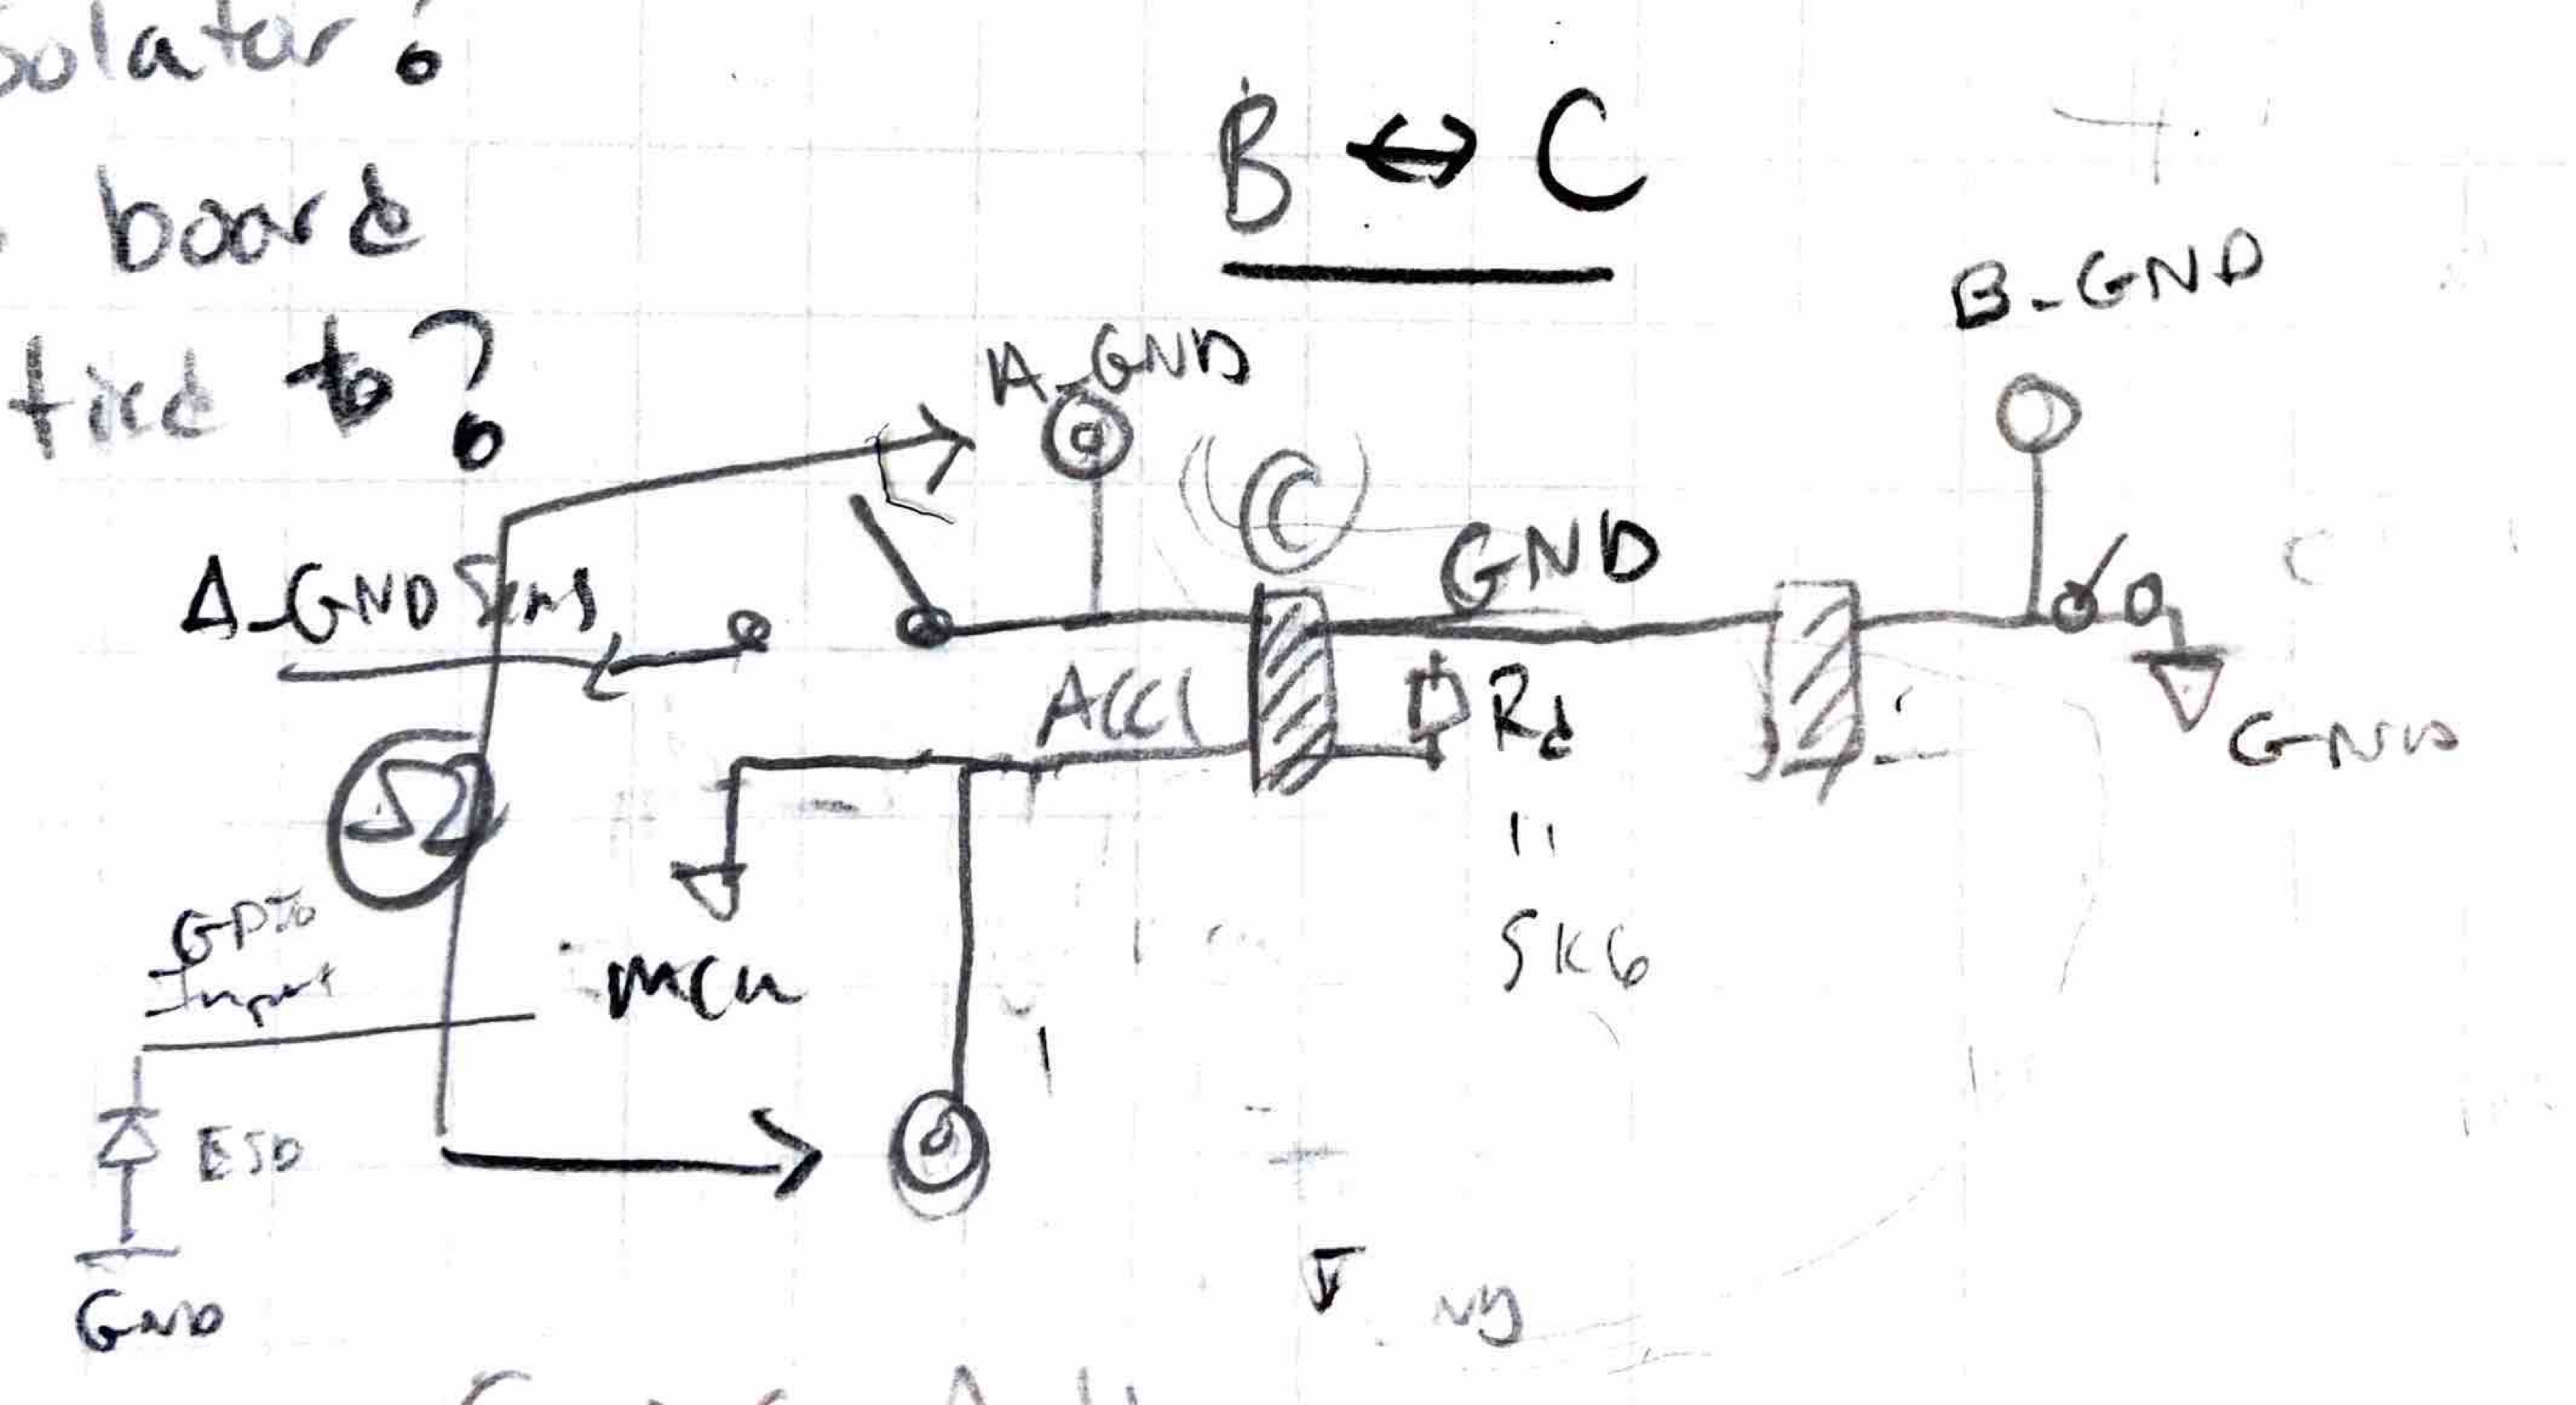 solator?
board
tied to?
B ↔ C
B_GND
A_GND
C
GND
A_GND Sens
ACC1
Rd
=
5K6
GND
Ω
GPIO
Input
MCU
ESD
GND